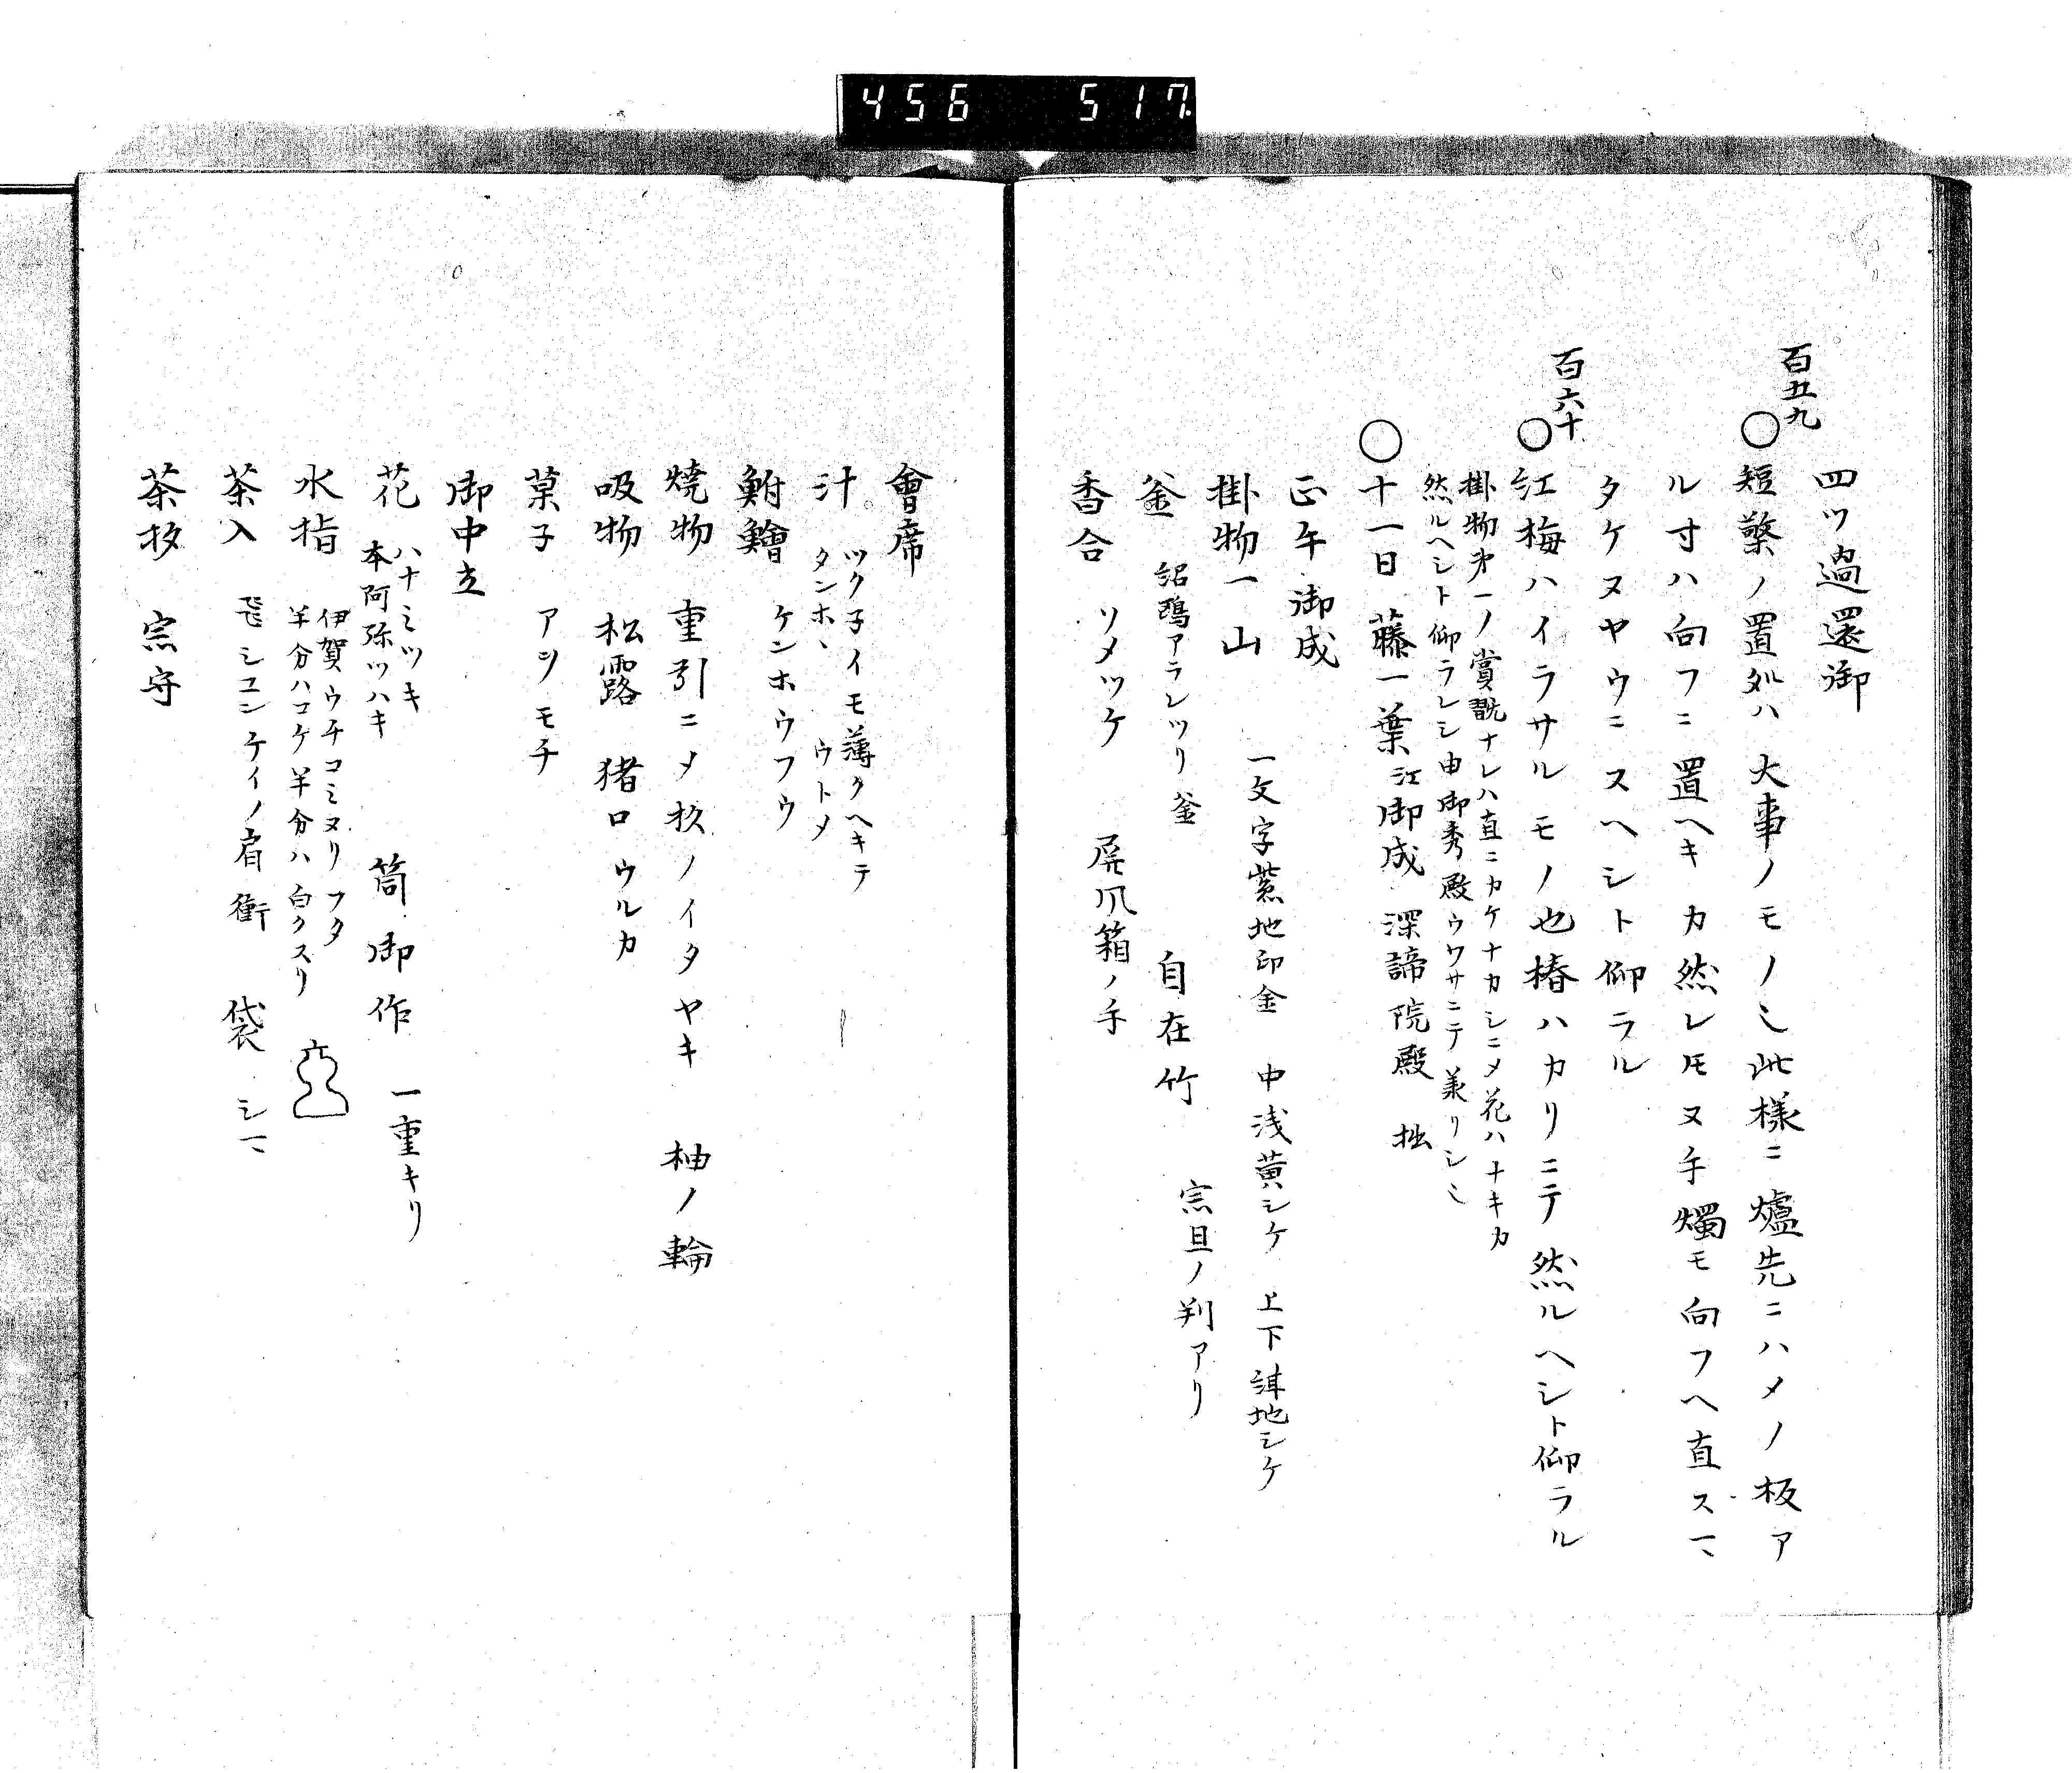 456 517
四ツ過還御
百五九
○短檠ノ置処ハ大事ノモノ也此様ニ爐先ニハメノ板ア
ル寸ハ向フニ置ヘキカ然レ𪜈ヌ手燭モ向フヘ直スヿ
タケヌヤウニスヘシト仰ラル
百六十
○江梅ハイラサルモノ也椿ハカリニテ然ルヘシト仰ラル
掛物第一ノ賞翫ナレハ直ニカケナカシニメ花ハナキカ
然ルヘシト仰ラレシ由御秀殿ウワサニテ羕リシ也
○十一日藤一葉江御成 深諦院殿 拙
正午御成
掛物一山 一文字紫地印金 中浅黄シケ 上下 地シケ
釜 紹鴎アラレツリ釜 自在竹 宗旦ノ判アリ
香合 ソメツケ 爪箱ノ手
會席
汁 ツク子イモ薄クヘキテ
タンホヽ ウトメ
鮒鱠 ケンホウフウ
焼物 重引ニメ杦ノイタヤキ 柚ノ輪
吸物 松露 猪口 ウルカ
菓子 アンモチ
御中立
花 ハナミツキ
本阿弥ツハキ 筒御作 一重キリ
水指 伊賀ウチコミヌリフタ
半分ハコケ半分ハ白クスリ
茶入 飛シユンケイノ肩衝 袋 シマ
茶杓 宗守